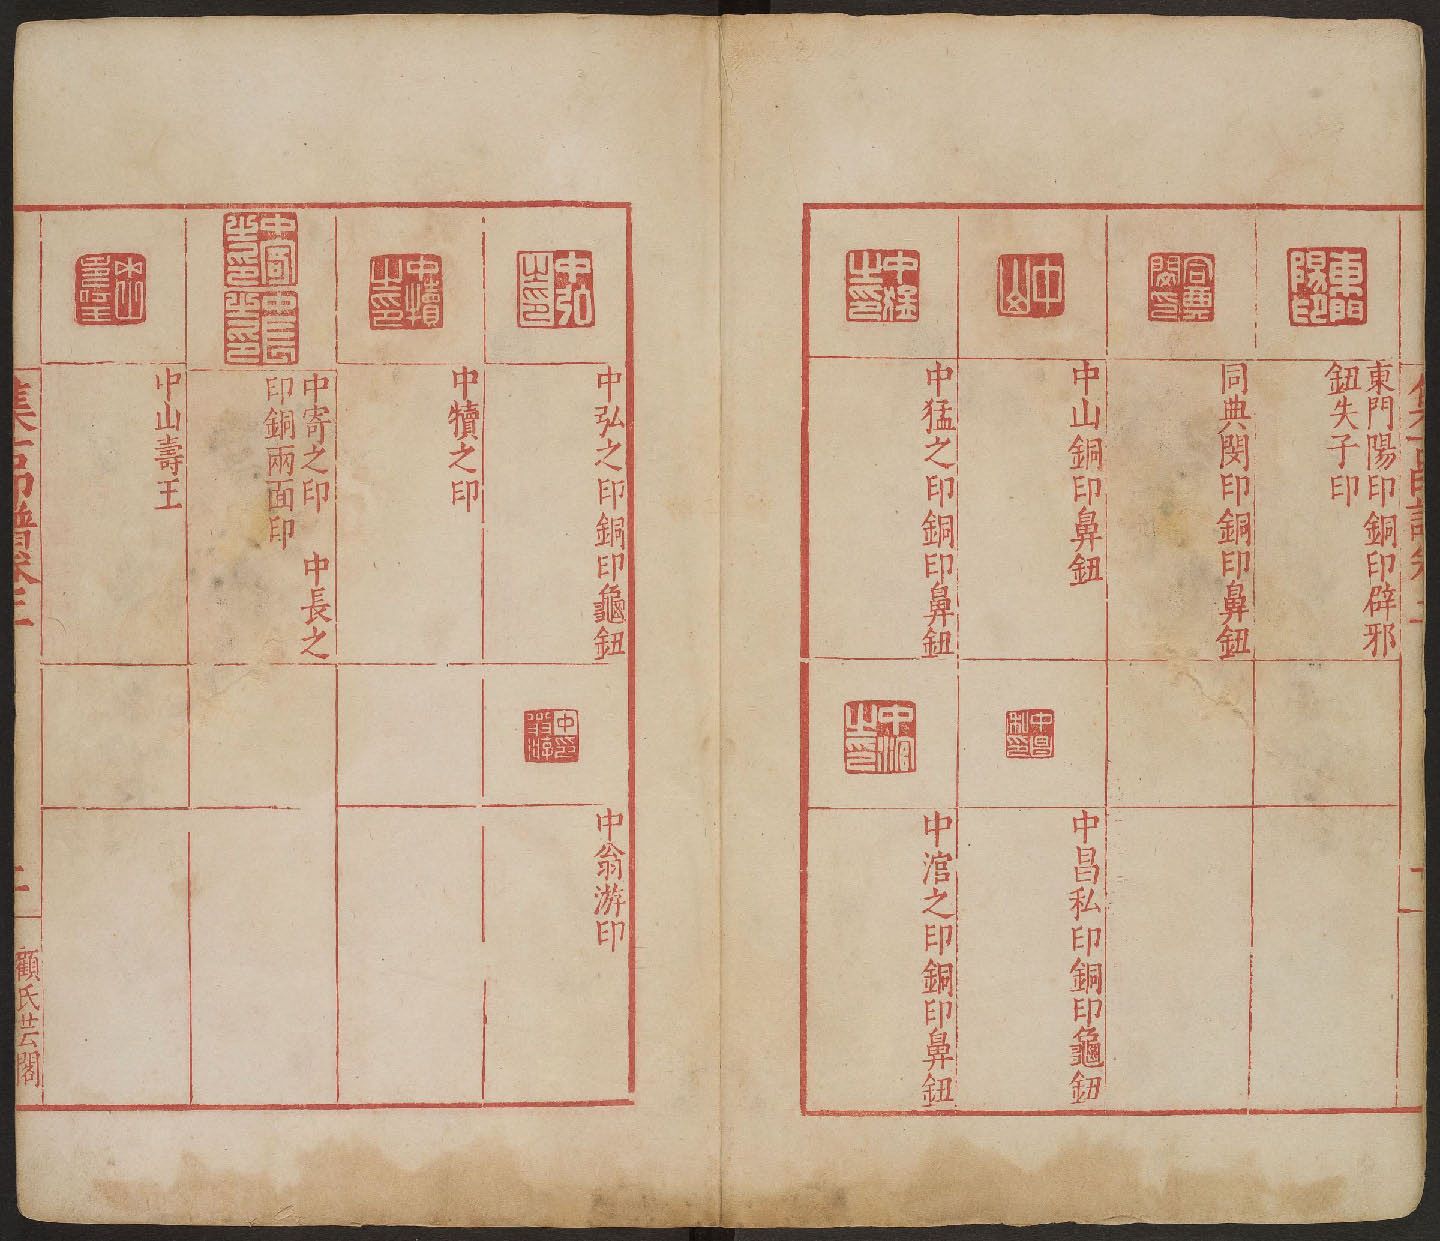 東門陽印銅印辟邪
鈕失子印
同典閔印銅印鼻鈕
中山銅印鼻鈕
中昌私印銅印龜鈕
中猛之印銅印鼻鈕
中涫之印銅印鼻鈕
中弘之印銅印龜鈕
中翁游印
中犢之印
中寄之印 中長之
印銅兩面印
中山壽王
集古印譜卷二
二
顧氏芸閣